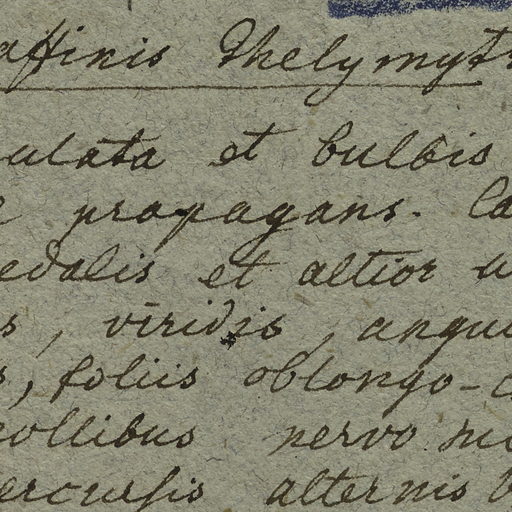 affinis Thelymyt
ulata et bulbis
propagans. Ca
edalis et altior u
s, viridis, angu
s, foliis oblongo-
collibus nervo
ercursis alternis